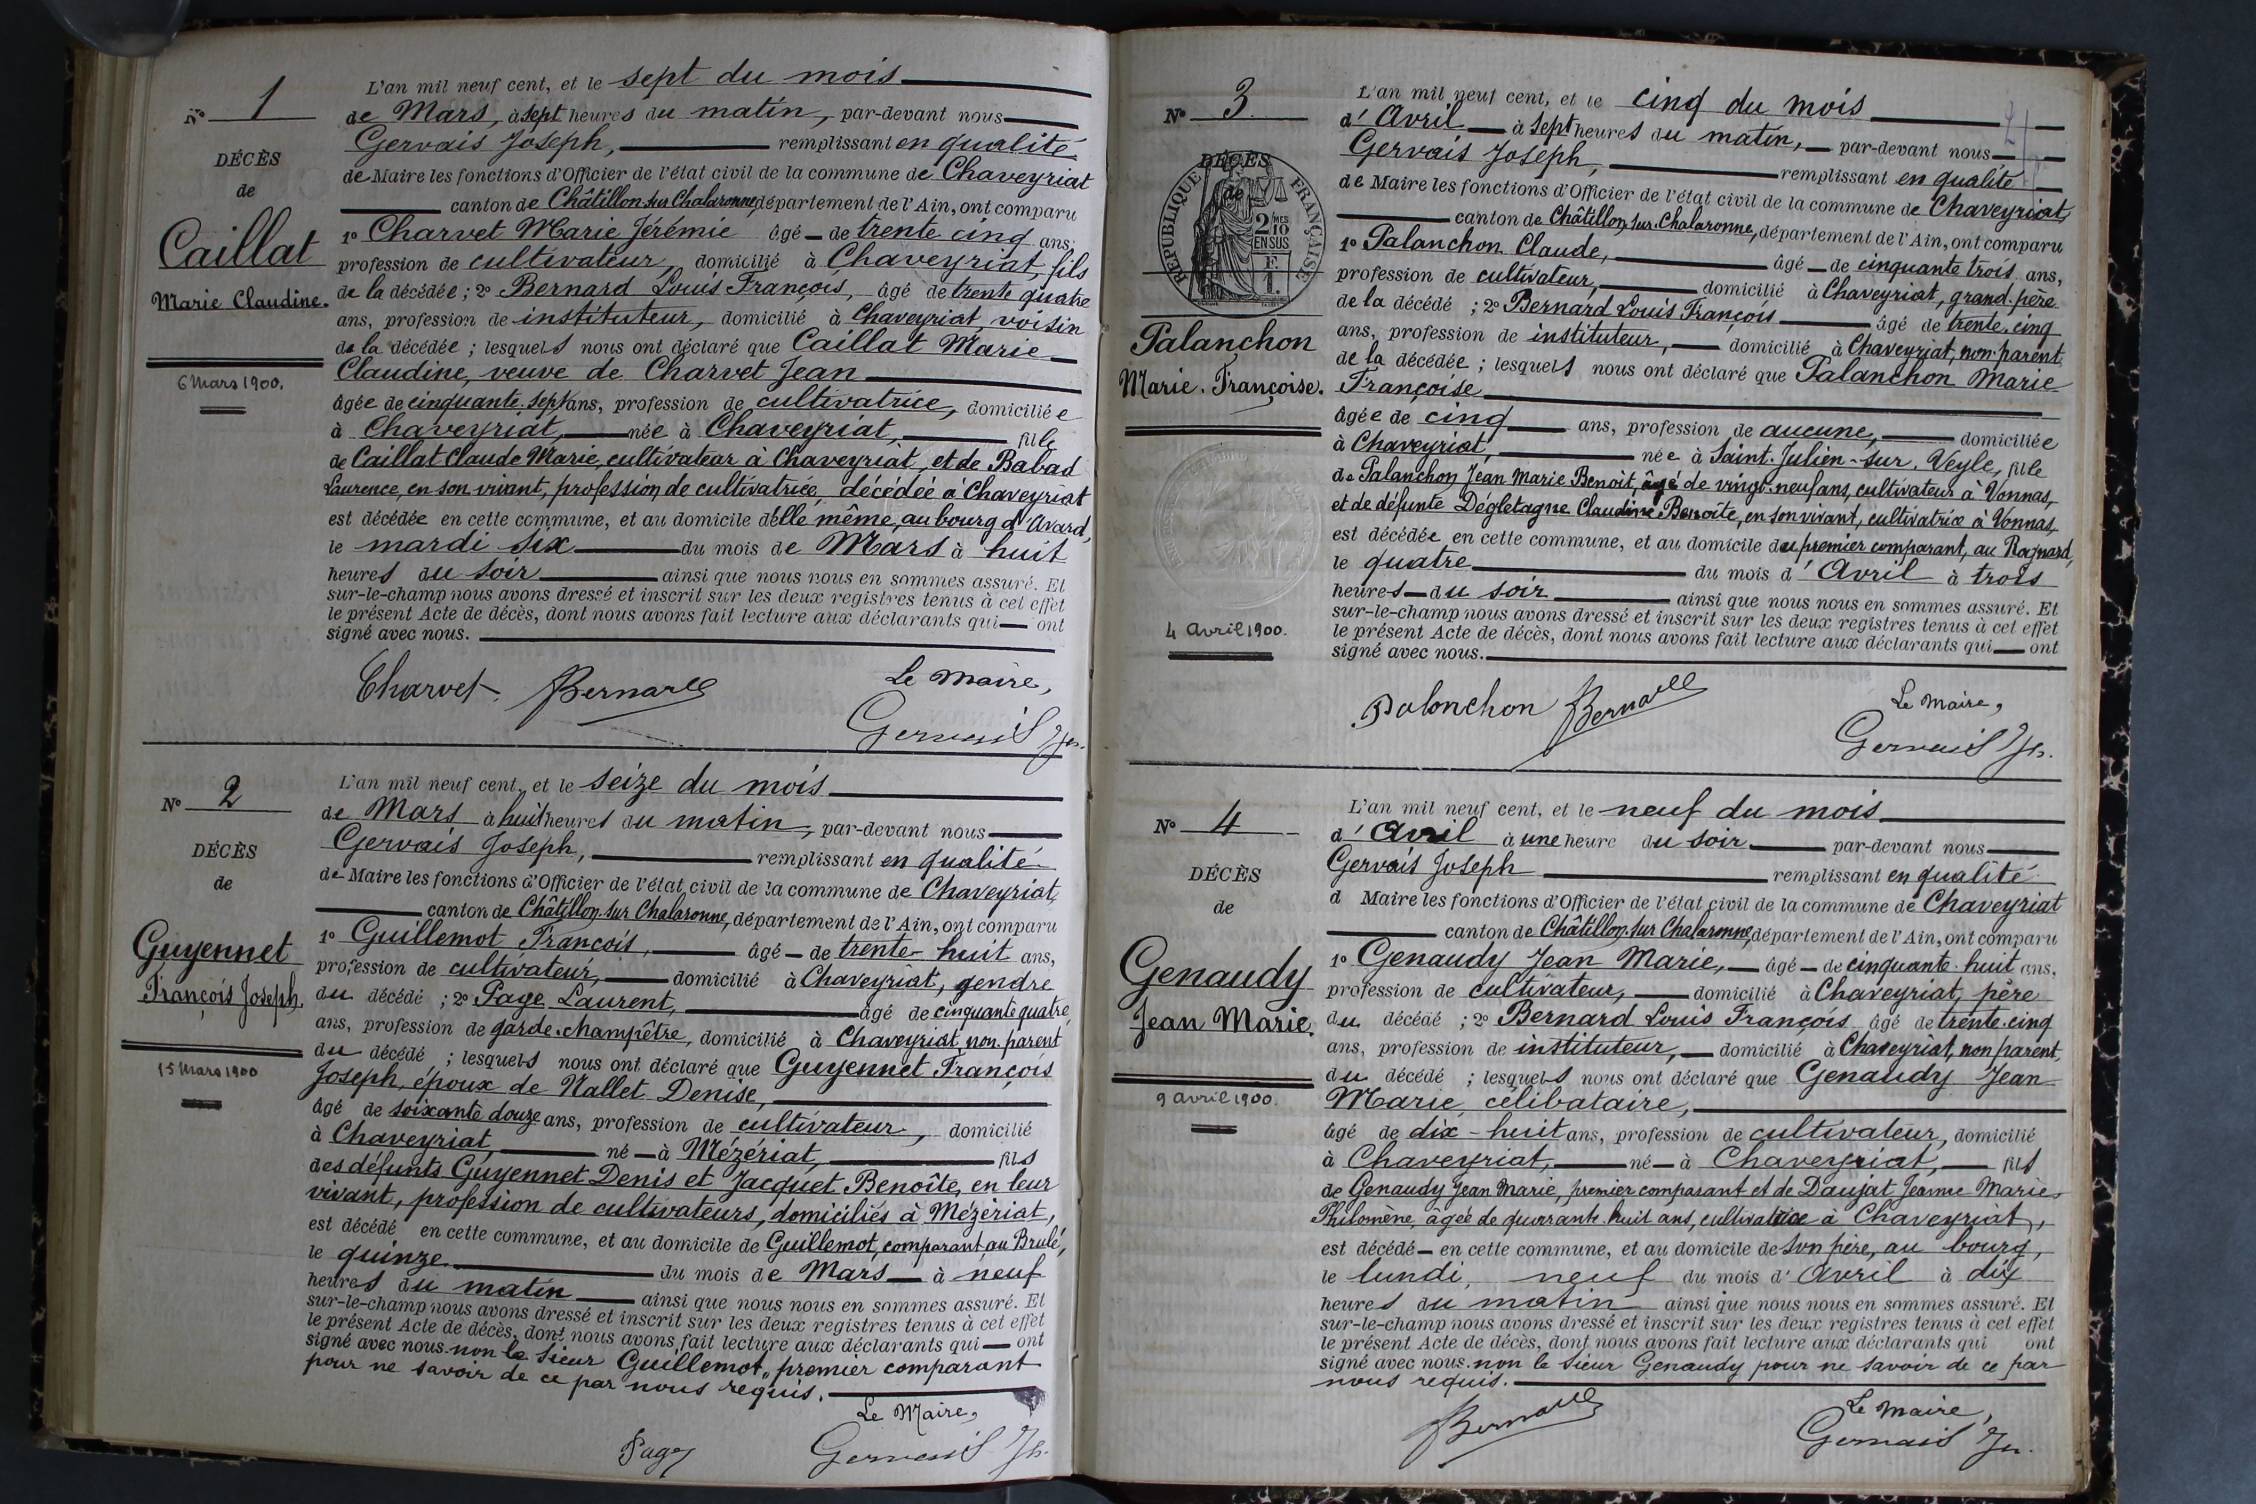 N° 1
DÉCÈS
de
Caillat
Marie Claudine.
6 Mars 1900.
L'an mil neuf cent, et le sept du mois
de Mars, à sept heures du matin, par-devant nous
Gervais Joseph, remplissant en qualité
de Maire les fonctions d'Officier de l'état civil de la commune de Chaveyriat
canton de Châtillon-sur-Chalaronne, département de l'Ain, ont comparu
1° Charvet Marie Jérémie âgé de trente cinq ans,
profession de cultivateur, domicilié à Chaveyriat, fils
de la décédée ; 2° Bernard Louis François, âgé de trente quatre
ans, profession de instituteur, domicilié à Chaveyriat, voisin
de la décédée ; lesquels nous ont déclaré que Caillat Marie
Claudine, veuve de Charvet Jean
âgée de cinquante-sept ans, profession de cultivatrice, domiciliée
à Chaveyriat, née à Chaveyriat, fille
de Caillat Claude Marie, cultivateur à Chaveyriat, et de Babad
Laurence, en son vivant, profession de cultivatrice, décédée à Chaveyriat
est décédée en cette commune, et au domicile d'elle même, au bourg d'Avard,
le mardi six du mois de Mars à huit
heures du soir ainsi que nous nous en sommes assuré. Et
sur-le-champ nous avons dressé et inscrit sur les deux registres tenus à cet effet
le présent Acte de décès, dont nous avons fait lecture aux déclarants qui ont
signé avec nous.
Charvet Bernard
Le Maire,
Gervais Jh.
N° 2
DÉCÈS
de
Guyennet
François Joseph.
15 Mars 1900
L'an mil neuf cent, et le seize du mois
de Mars à huit heures du matin, par-devant nous
Gervais Joseph, remplissant en qualité
de Maire les fonctions d'Officier de l'état civil de la commune de Chaveyriat,
canton de Châtillon-sur-Chalaronne, département de l'Ain, ont comparu
1° Guillemot François, âgé de trente-huit ans,
profession de cultivateur, domicilié à Chaveyriat, gendre
du décédé ; 2° Page Laurent, âgé de cinquante quatre
ans, profession de garde-champêtre, domicilié à Chaveyriat, non-parent
du décédé ; lesquels nous ont déclaré que Guyennet François
Joseph, époux de Vallet Denise,
âgé de soixante douze ans, profession de cultivateur, domicilié
à Chaveyriat, né à Mézériat, fils
des défunts Guyennet Denis et Jacquet Benoîte, en leur
vivant, profession de cultivateurs, domiciliés à Mézériat,
est décédé en cette commune, et au domicile de Guillemot, comparant, au Brulé,
le quinze du mois de Mars à neuf
heures du matin ainsi que nous nous en sommes assuré. Et
sur-le-champ nous avons dressé et inscrit sur les deux registres tenus à cet effet
le présent Acte de décès, dont nous avons fait lecture aux déclarants qui ont
signé avec nous. non le Sieur Guillemot, premier comparant
pour ne savoir de ce par nous requis.
Le Maire,
Page Gervais Jh.
N° 3
DÉCÈS
de
RÉPUBLIQUE FRANÇAISE
2/10 MES
EN SUS
F.
1.
Palanchon
Marie-Françoise.
4 Avril 1900.
L'an mil neuf cent, et le cinq du mois
d'Avril à sept heures du matin, par-devant nous
Gervais Joseph, remplissant en qualité
de Maire les fonctions d'Officier de l'état civil de la commune de Chaveyriat,
canton de Châtillon-sur-Chalaronne, département de l'Ain, ont comparu
1° Palanchon Claude, âgé de cinquante trois ans,
profession de cultivateur, domicilié à Chaveyriat, grand-père
de la décédé ; 2° Bernard Louis François âgé de trente-cinq
ans, profession de instituteur, domicilié à Chaveyriat, non-parent
de la décédée ; lesquels nous ont déclaré que Palanchon Marie
Françoise
âgée de cinq ans, profession de aucune, domiciliée
à Chaveyriat, née à Saint-Julien-sur-Veyle, fille
de Palanchon Jean Marie Benoît, âgé de vingt-neuf ans, cultivateur à Vonnas,
et de défunte Dégletagne Claudine Benoîte, en son vivant, cultivatrice à Vonnas,
est décédée en cette commune, et au domicile du premier comparant, au Rognard,
le quatre du mois d'Avril à trois
heures du soir ainsi que nous nous en sommes assuré. Et
sur-le-champ nous avons dressé et inscrit sur les deux registres tenus à cet effet
le présent Acte de décès, dont nous avons fait lecture aux déclarants qui ont
signé avec nous.
Palanchon Bernard
Le Maire,
Gervais Jh.
N° 4
DÉCÈS
de
Genaudy
Jean Marie.
9 Avril 1900.
L'an mil neuf cent, et le neuf du mois
d'Avril à une heure du soir par-devant nous
Gervais Joseph remplissant en qualité
d Maire les fonctions d'Officier de l'état civil de la commune de Chaveyriat
canton de Châtillon-sur-Chalaronne, département de l'Ain, ont comparu
1° Genaudy Jean Marie, âgé de cinquante-huit ans,
profession de cultivateur, domicilié à Chaveyriat, père
du décédé ; 2° Bernard Louis François âgé de trente-cinq
ans, profession de instituteur, domicilié à Chaveyriat, non parent,
du décédé ; lesquels nous ont déclaré que Genaudy Jean
Marie, célibataire,
âgé de dix-huit ans, profession de cultivateur, domicilié
à Chaveyriat, né à Chaveyriat, fils
de Genaudy Jean Marie, premier comparant et de Daujat Jeanne Marie
Philomène, âgée de quarante-huit ans, cultivatrice à Chaveyriat,
est décédé en cette commune, et au domicile de son père, au bourg,
le lundi, neuf du mois d'Avril à dix
heures du matin ainsi que nous nous en sommes assuré. Et
sur-le-champ nous avons dressé et inscrit sur les deux registres tenus à cet effet
le présent Acte de décès, dont nous avons fait lecture aux déclarants qui ont
signé avec nous. non le Sieur Genaudy pour ne savoir de ce par
nous requis.
Bernard
Le Maire,
Gervais Jh.